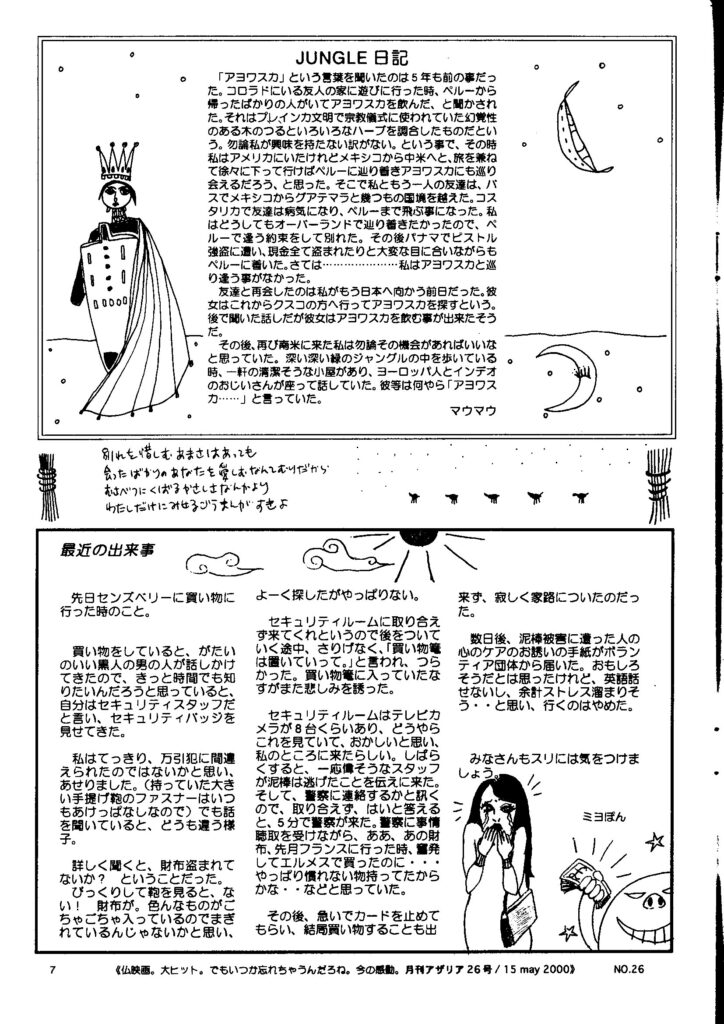 JUNGLE 日記
「アヨワスカ」という言葉を聞いたのは５年も前の事だっ
た。コロラドにいる友人の家に遊びに行った時、ペルーから
帰ったばかりの人がいてアヨワスカを飲んだ、と聞かされ
た。それはプレインカ文明で宗教儀式に使われていた幻覚性
のある木のつるといろいろなハーブを調合したものだとい
う。勿論私が興味を持たない訳がない。という事で、その時
私はアメリカにいたけれどメキシコから中米へと、旅を兼ね
て徐々に下って行けばペルーに辿り着きアヨワスカにも巡り
会えるだろう、と思った。そこで私ともう一人の友達は、バ
スでメキシコからグアテマラと幾つもの国境を越えた。コス
タリカで友達は病気になり、ペルーまで飛ぶ事になった。私
はどうしてもオーバーランドで辿り着きたかったので、ペ
ルーで逢う約束をして別れた。その後パナマでピストル
強盗に遭い、現金全て盗まれたりと大変な目に合いながらも
ペルーに着いた。さては…………………私はアヨワスカと巡
り逢う事がなかった。
友達と再会したのは私がもう日本へ向かう前日だった。彼
女はこれからクスコの方へ行ってアヨワスカを探すという。
後で聞いた話しだが彼女はアヨワスカを飲む事が出来たそう
だ。
その後、再び南米に来た私は勿論その機会があればいいな
と思っていた。深い深い緑のジャングルの中を歩いている
時、一軒の清潔そうな小屋があり、ヨーロッパ人とインデオ
のおじいさんが座って話していた。彼等は何やら「アヨワス
カ……」と言っていた。
マウマウ
別れを惜しむあまさはあっても
会ったばかりのあなたを愛しむなんてむりだから
むさべつにくばるやさしさなんかより
わたしだけにみせるごうまんがすきよ
最近の出来事
先日センズベリーに買い物に
行った時のこと。
買い物をしていると、がたい
のいい黒人の男の人が話しかけ
てきたので、きっと時間でも知
りたいんだろうと思っていると、
自分はセキュリティスタッフだ
と言い、セキュリティバッジを
見せてきた。
私はてっきり、万引犯に間違
えられたのではないかと思い、
あせりました。（持っていた大き
い手提げ鞄のファスナーはいつ
もあけっぱなしなので）でも話
を聞いていると、どうも違う様
子。
詳しく聞くと、財布盗まれて
ないか？　ということだった。
びっくりして鞄を見ると、な
い！　財布が。色んなものがご
ちゃごちゃ入っているのでまぎ
れているんじゃないかと思い、
よーく探したがやっぱりない。
セキュリティルームに取り合え
ず来てくれというので後をついて
いく途中、さりげなく、「買い物篭
は置いていって。」と言われ、つら
かった。買い物篭に入っていたな
すがまた悲しみを誘った。
セキュリティルームはテレビカ
メラが８台くらいあり、どうやら
これを見ていて、おかしいと思い、
私のところに来たらしい。しばら
くすると、一応憶そうなスタッフ
が泥棒は逃げたことを伝えに来た。
そして、警察に連絡するかと訊く
ので、取り合えず、はいと答える
と、５分で警察が来た。警察に事情
聴取を受けながら、ああ、あの財
布、先月フランスに行った時、奮発
してエルメスで買ったのに・・・
やっぱり慣れない物持ってたから
かな・・などと思っていた。
その後、急いでカードを止めて
もらい、結局買い物することも出
来ず、寂しく家路についたのだっ
た。
数日後、泥棒被害に遭った人の
心のケアのお誘いの手紙がボラン
ティア団体から届いた。おもしろ
そうだとは思ったけれど、英語話
せないし、余計ストレス溜まりそ
う・・と思い、行くのはやめた。
みなさんもスリには気をつけま
しょう。
ミヨぽん
7　《仏映画。大ヒット。でもいつか忘れちゃうんだろね。今の感動。月刊アザリア 26号 / 15 may 2000》　NO.26